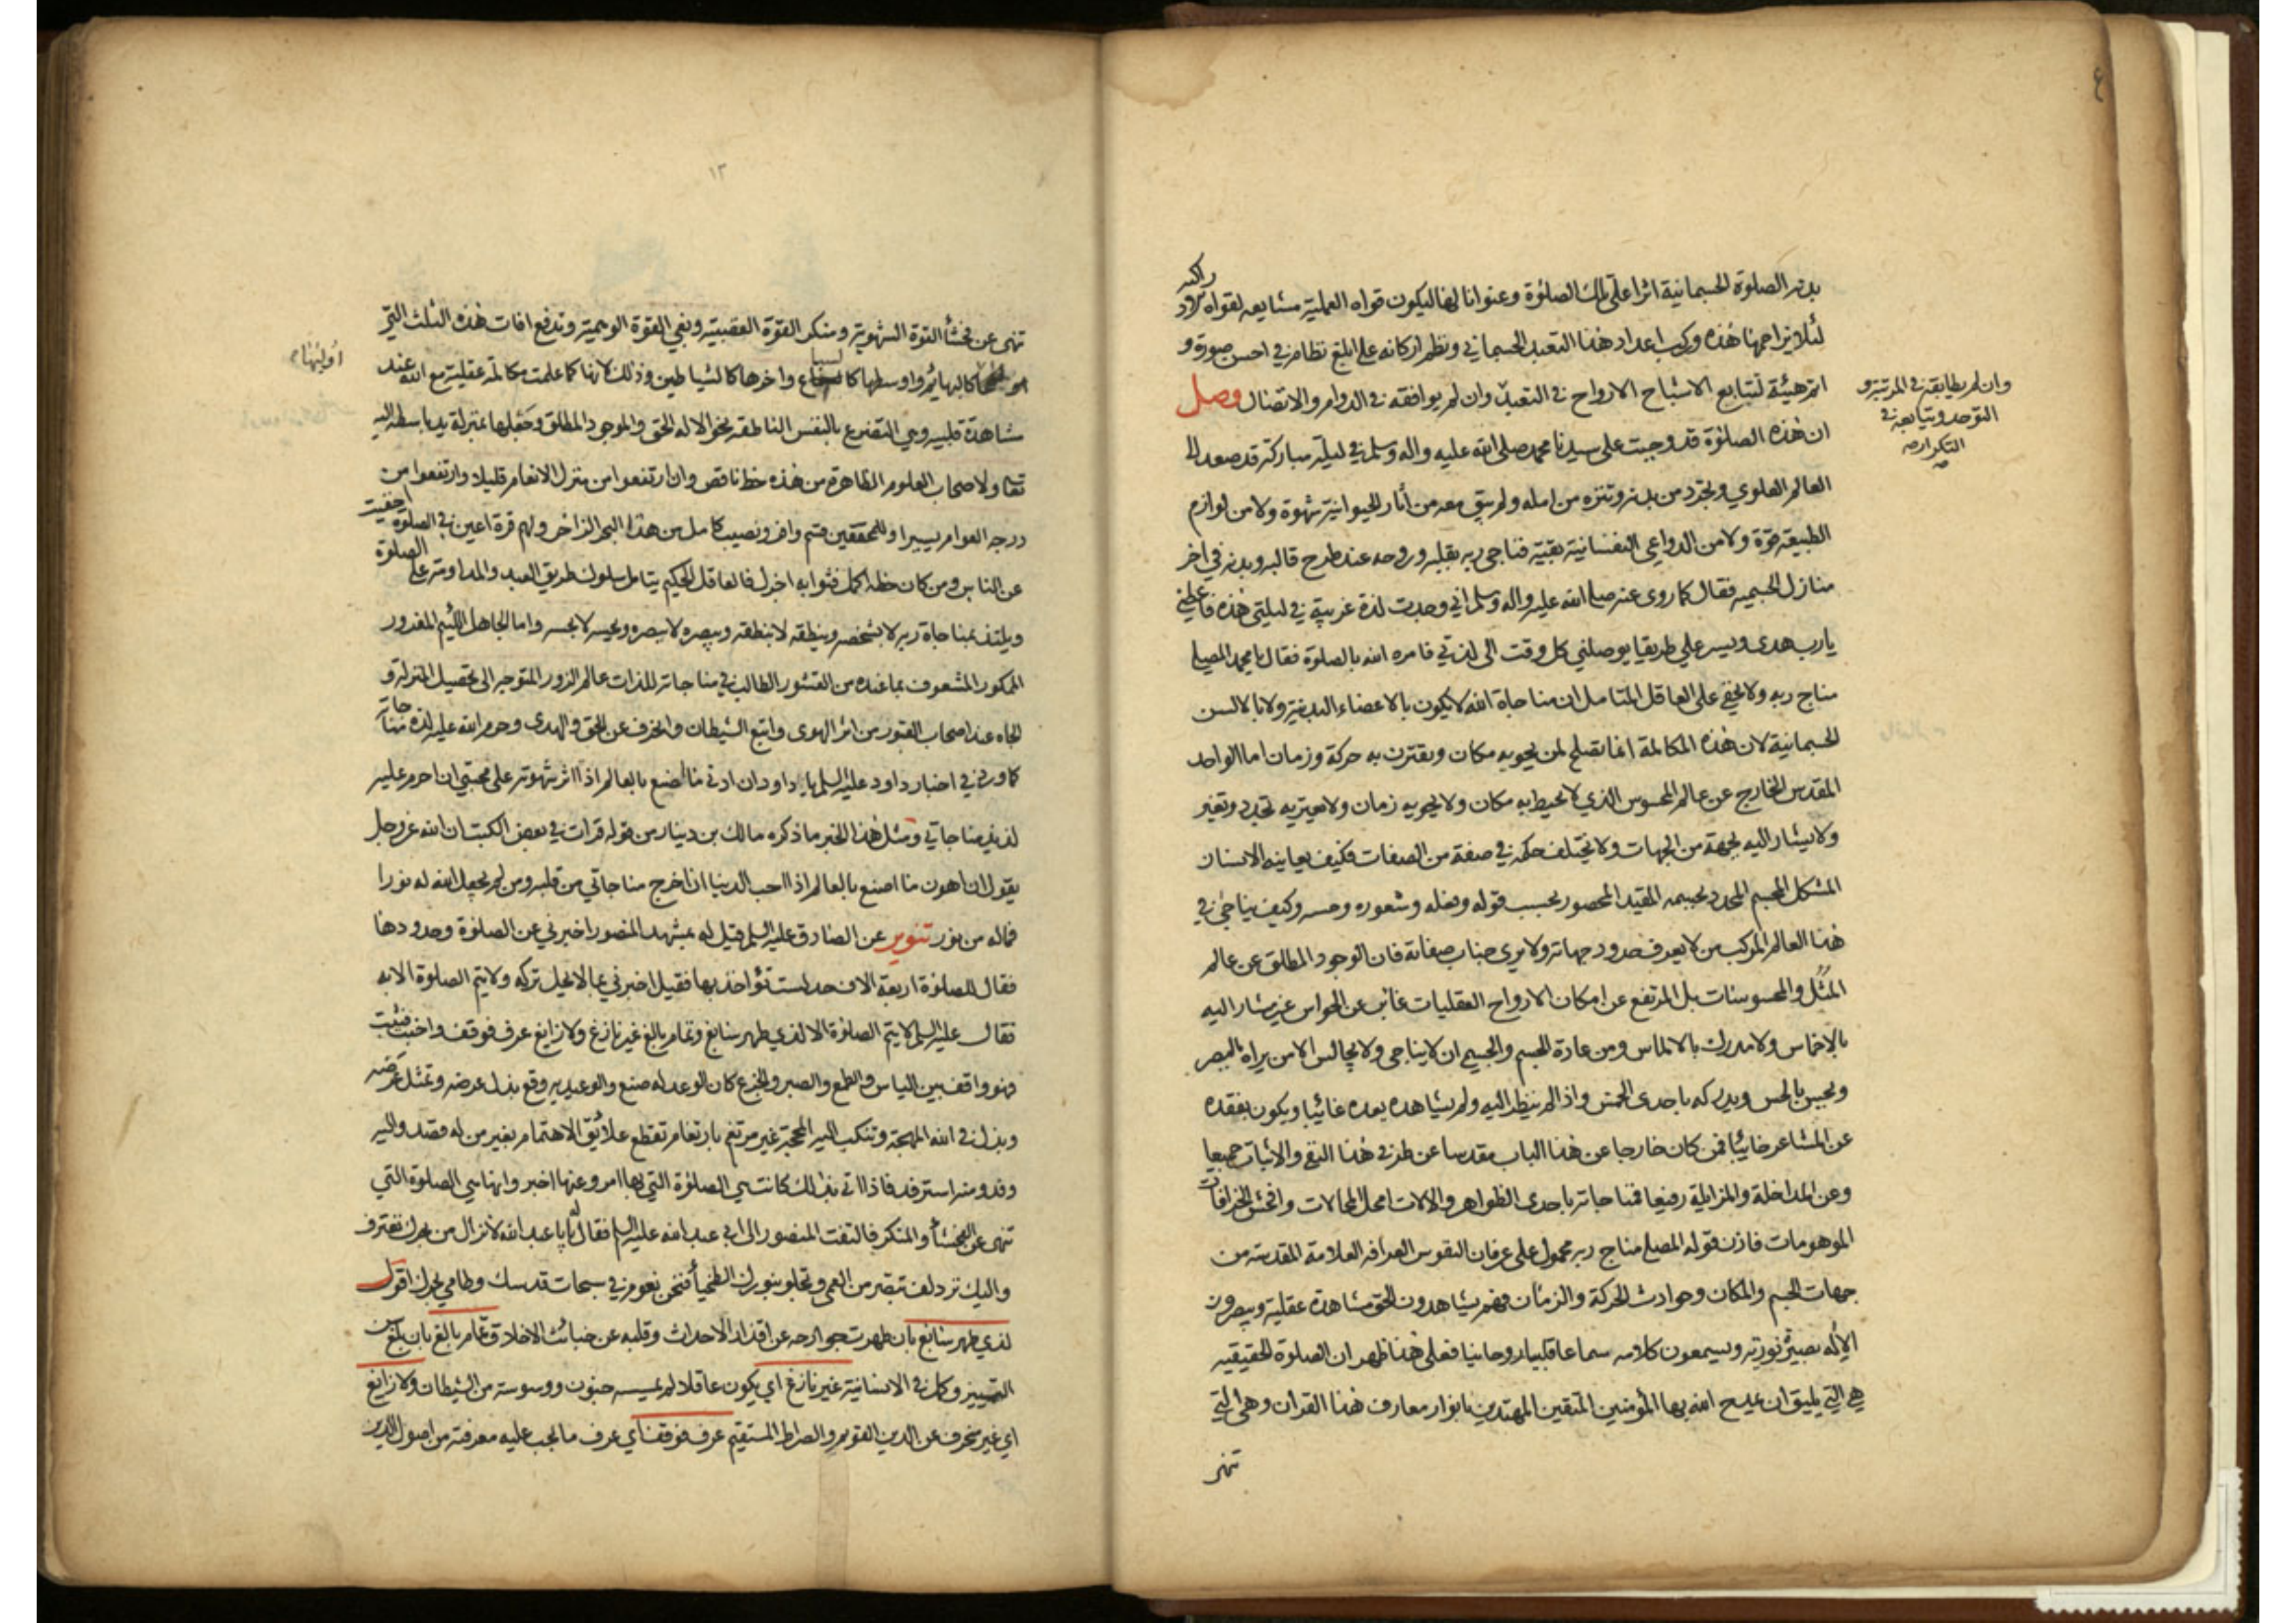 ٤
بدنه الصلوة الجسمانية اثرا على تلك الصلوة وعنوانا لها ليكون قواه العملية مشايعه لقواه
لئلا يزاحمها هذه وركب اعداد هذا التعبد الجسماني ونظم اركانه على ابلغ نظام في احسن صورة و
اتم هيئة لتتابع الاشباح الارواح في التعبد وان لم يوافقه في الدوام والاتصال وصل
وان لم يطابقه في المرتبة و
التوحد ويتابعه في
التكرار صه
ان هذه الصلوة قد وجبت على سيدنا محمد صلى الله عليه واله وسلم في ليلة مباركة قد صعد الى
العالم العلوي وتجرد من بدنه وتنزه من امله ولم يبق معه من أثار الحيوانية شهوة ولا من لوازم
الطبيعة قوة ولا من الدواعي النفسانية بقية فناجى ربه بقلبه وروحه عند طرح قالبه وبدنه في اخر
منازل الجسمية فقال كما روى عنه صلى الله عليه واله وسلم اني وجدت لذة غريبة في ليلتي هذه فاعطني
يا رب هدى ويسر علي طريقا يوصلني كل وقت الى لذتي فامره الله بالصلوة فقال يا محمد المصلي
مناج ربه ولا يخفى على العاقل المتامل ان مناجاة الله لا يكون بالاعضاء البدنية ولا بالالسن
الجسمانية لان هذه المكالمة انما تصلح لمن يحويه مكان ويقترن به حركة وزمان اما الواحد
المقدس الخارج عن عالم المحسوس الذي لا يحيط به مكان ولا يحويه زمان ولا يعتريه تجدد وتغير
ولا يشار اليه بجهة من الجهات ولا يختلف حكمه في صفة من الصفات فكيف يعاينه الانسان
المشكل المجسم المحدد بجسمه المقيد المحصور بحسب قوله وفعله وشعوره وحسه وكيف يناجى في
هذا العالم المركب من لا يعرف حدود جهاته ولا يرى جناب صفاته فان الوجود المطلق عن عالم
المثل والمحسوسات بل المرتفع عن امكان الارواح العقليات غائب عن الحواس غير مشار اليه
بالاخماس ولا مدرك بالالماس ومن عادة الجسم والجسم ان لا يناجى ولا يجالس الا من يراه بالبصر
ويحس بالحس ويدركه باحدى الخمس واذا لم ينظر اليه ولم يشاهده يعده غائبا ويكون بفقده
عن المشاعر خائبا فمن كان خارجا عن هذا الباب مقدسا عن طرفي هذا النفي والاثبات جميعا
وعن المداخلة والمزايلة رفيعا فمناجاته باحدى الظواهر والالات امحل المحالات وافحش الخرافات
الموهومات فاذن قوله المصلي مناج ربه محمول على عرفان النفوس العرافة العلامة المقدسة من
جهات الجسم والمكان وحوادث الحركة والزمان فهم يشاهدون الحق مشاهدة عقلية ويبصرون
الاله بصيرة نورية ويسمعون كلامه سماعا قلبيا روحانيا فعلى هذا ظهر ان الصلوة الحقيقية
هي التي يليق ان يمدح الله بها المؤمنين المتقين المهتدين بانوار معارف هذا القران وهي التي
تنهى
١٣
تنهى عن فحشأ القوة الشهوية ومنكر القوة الغضبية وبغي القوة الوهمية وتدفع افات هذه الثلث التي
اوليها
كالبهائم واوسطها كالسباع واخرها كالشياطين وذلك لانها كما علمت مكالمة عقلية مع الله عند
مشاهدة قلبيه وهي التضرع بالنفس الناطقة نحو الاله الحق والموجود المطلق وجعلها بمنزلة يد باسطة اليه
تعا ولاصحاب العلوم الظاهرة من هذه حظ ناقص وان ارتفعوا من منزل الانعام قليلا وارتفعوا من
درجه العوام يسيرا وللمحققين قسم وافر ونصيب كامل من هذا البحر الزاخر ولهم قرة اعين في الصلوة اخفيت
عن الناس ومن كان حظه اكمل فثوابه اجزل فالعاقل الحكيم يتامل سلوك طريق العبد والمداومة على الصلوة
ويلتذ بمناجاة ربه لا بشخصه وينطقه لا بنطقه ويبصره لا ببصره ويحسه لا بحسه واما الجاهل اللئيم المغدور
الممكور المشعوف بما عنده من القشور الطالب في مناجاته للذات عالم الزور المتوجه الى تحصيل المنزلة و
الجاه عند اصحاب القبور من اثر الهوى واتبع الشيطان وانحرف عن الحق والهدى وحرم الله عليه لذة مناجاته
كما ورد في اخبار داود عليه السلم يا داود ان ادنى ما أصنع بالعالم اذا اثر شهوته على محبتي ان احرم عليه
لذيذ مناجاتي ومثل هذا الخبر ما ذكره مالك بن دينار من قوله قرات في بعض الكتب ان الله عز وجل
يقول ان اهون ما اصنع بالعالم اذا احب الدنيا ان اخرج مناجاتي من قلبه ومن لم يجعل الله له نورا
فما له من نور تنوير عن الصادق عليه السلم قيل له بمشهد المنصور اخبرني عن الصلوة وحدودها
فقال للصلوة اربعة الاف حد لست تؤاخذ بها فقيل اخبرني بما لا يحل تركه ولا يتم الصلوة الا به
فقال عليه السلم لا يتم الصلوة الا لذي طهر سابغ وتمام بالغ غير نازغ ولا زايغ عرف فوقف واخبت فثبت
فهو واقف بين الياس والطمع والصبر والجزع كان الوعد له صنع والوعيد به وقع بذل عرضه وتمثل غرضه
وبذل في الله المهجة وتنكب اليه المحجة غير مرتغم بارتغام تقطع علائق الاهتمام بغير من له قصد واليه
وفد ومنه استرفد فاذا اتى بذلك كانت هي الصلوة التي بها امر وعنها اخبر وانها هي الصلوة التي
تنهى عن الفحشأ والمنكر فالتفت المنصور الى ابي عبد الله عليه السلم فقال له يا با عبد الله لا نزال من بحرك نغترف
واليك نزدلف تبصر من العمى وتجلو بنورك الطخيأ فنحن نعوم في سبحات قدسك وطامي بحرك اقول
لذي طهر سابغ بان طهرت جوارحه عن اقذار الاحداث وقلبه عن خبائث الاخلاق وتمام بالغ بان بلغ
التمييز وكمل في الانسانية غير نازغ اي يكون عاقلا لم يمسه جنون ووسوسة من الشيطان ولا زايغ
اي غير منحرف عن الدين القويم والصراط المستقيم عرف فوقف اي عرف ما يجب عليه معرفته من اصول الدين